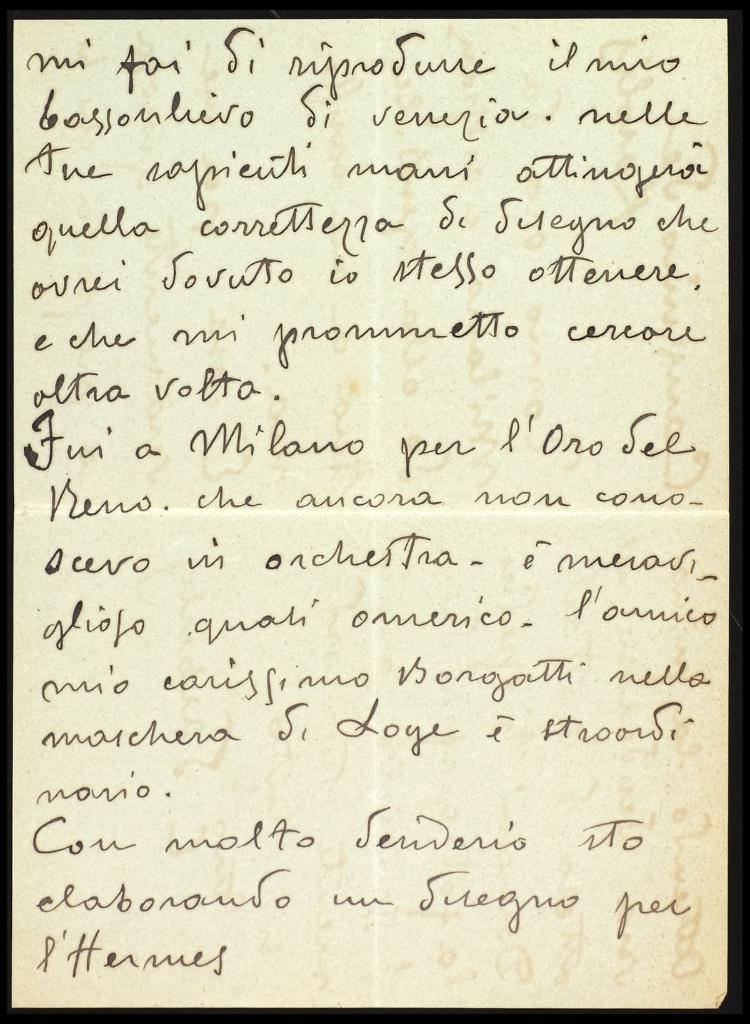 mi fai di riprodurre il mio
bassorilievo di venezia. nelle
tue sapienti mani attingerà
quella correttezza di disegno che
avrei dovuto io stesso ottenere,
e che mi prommetto cercare
altra volta.
Fui a Milano per l'Oro del
Reno. che ancora non cono-
scevo in orchestra - è meravi-
glioso quasi omerico. l'amico
mio carissimo Borgatti nella
maschera di Loge è straordi
nario.
Con molto desiderio sto
elaborando un disegno per
l'Hermes